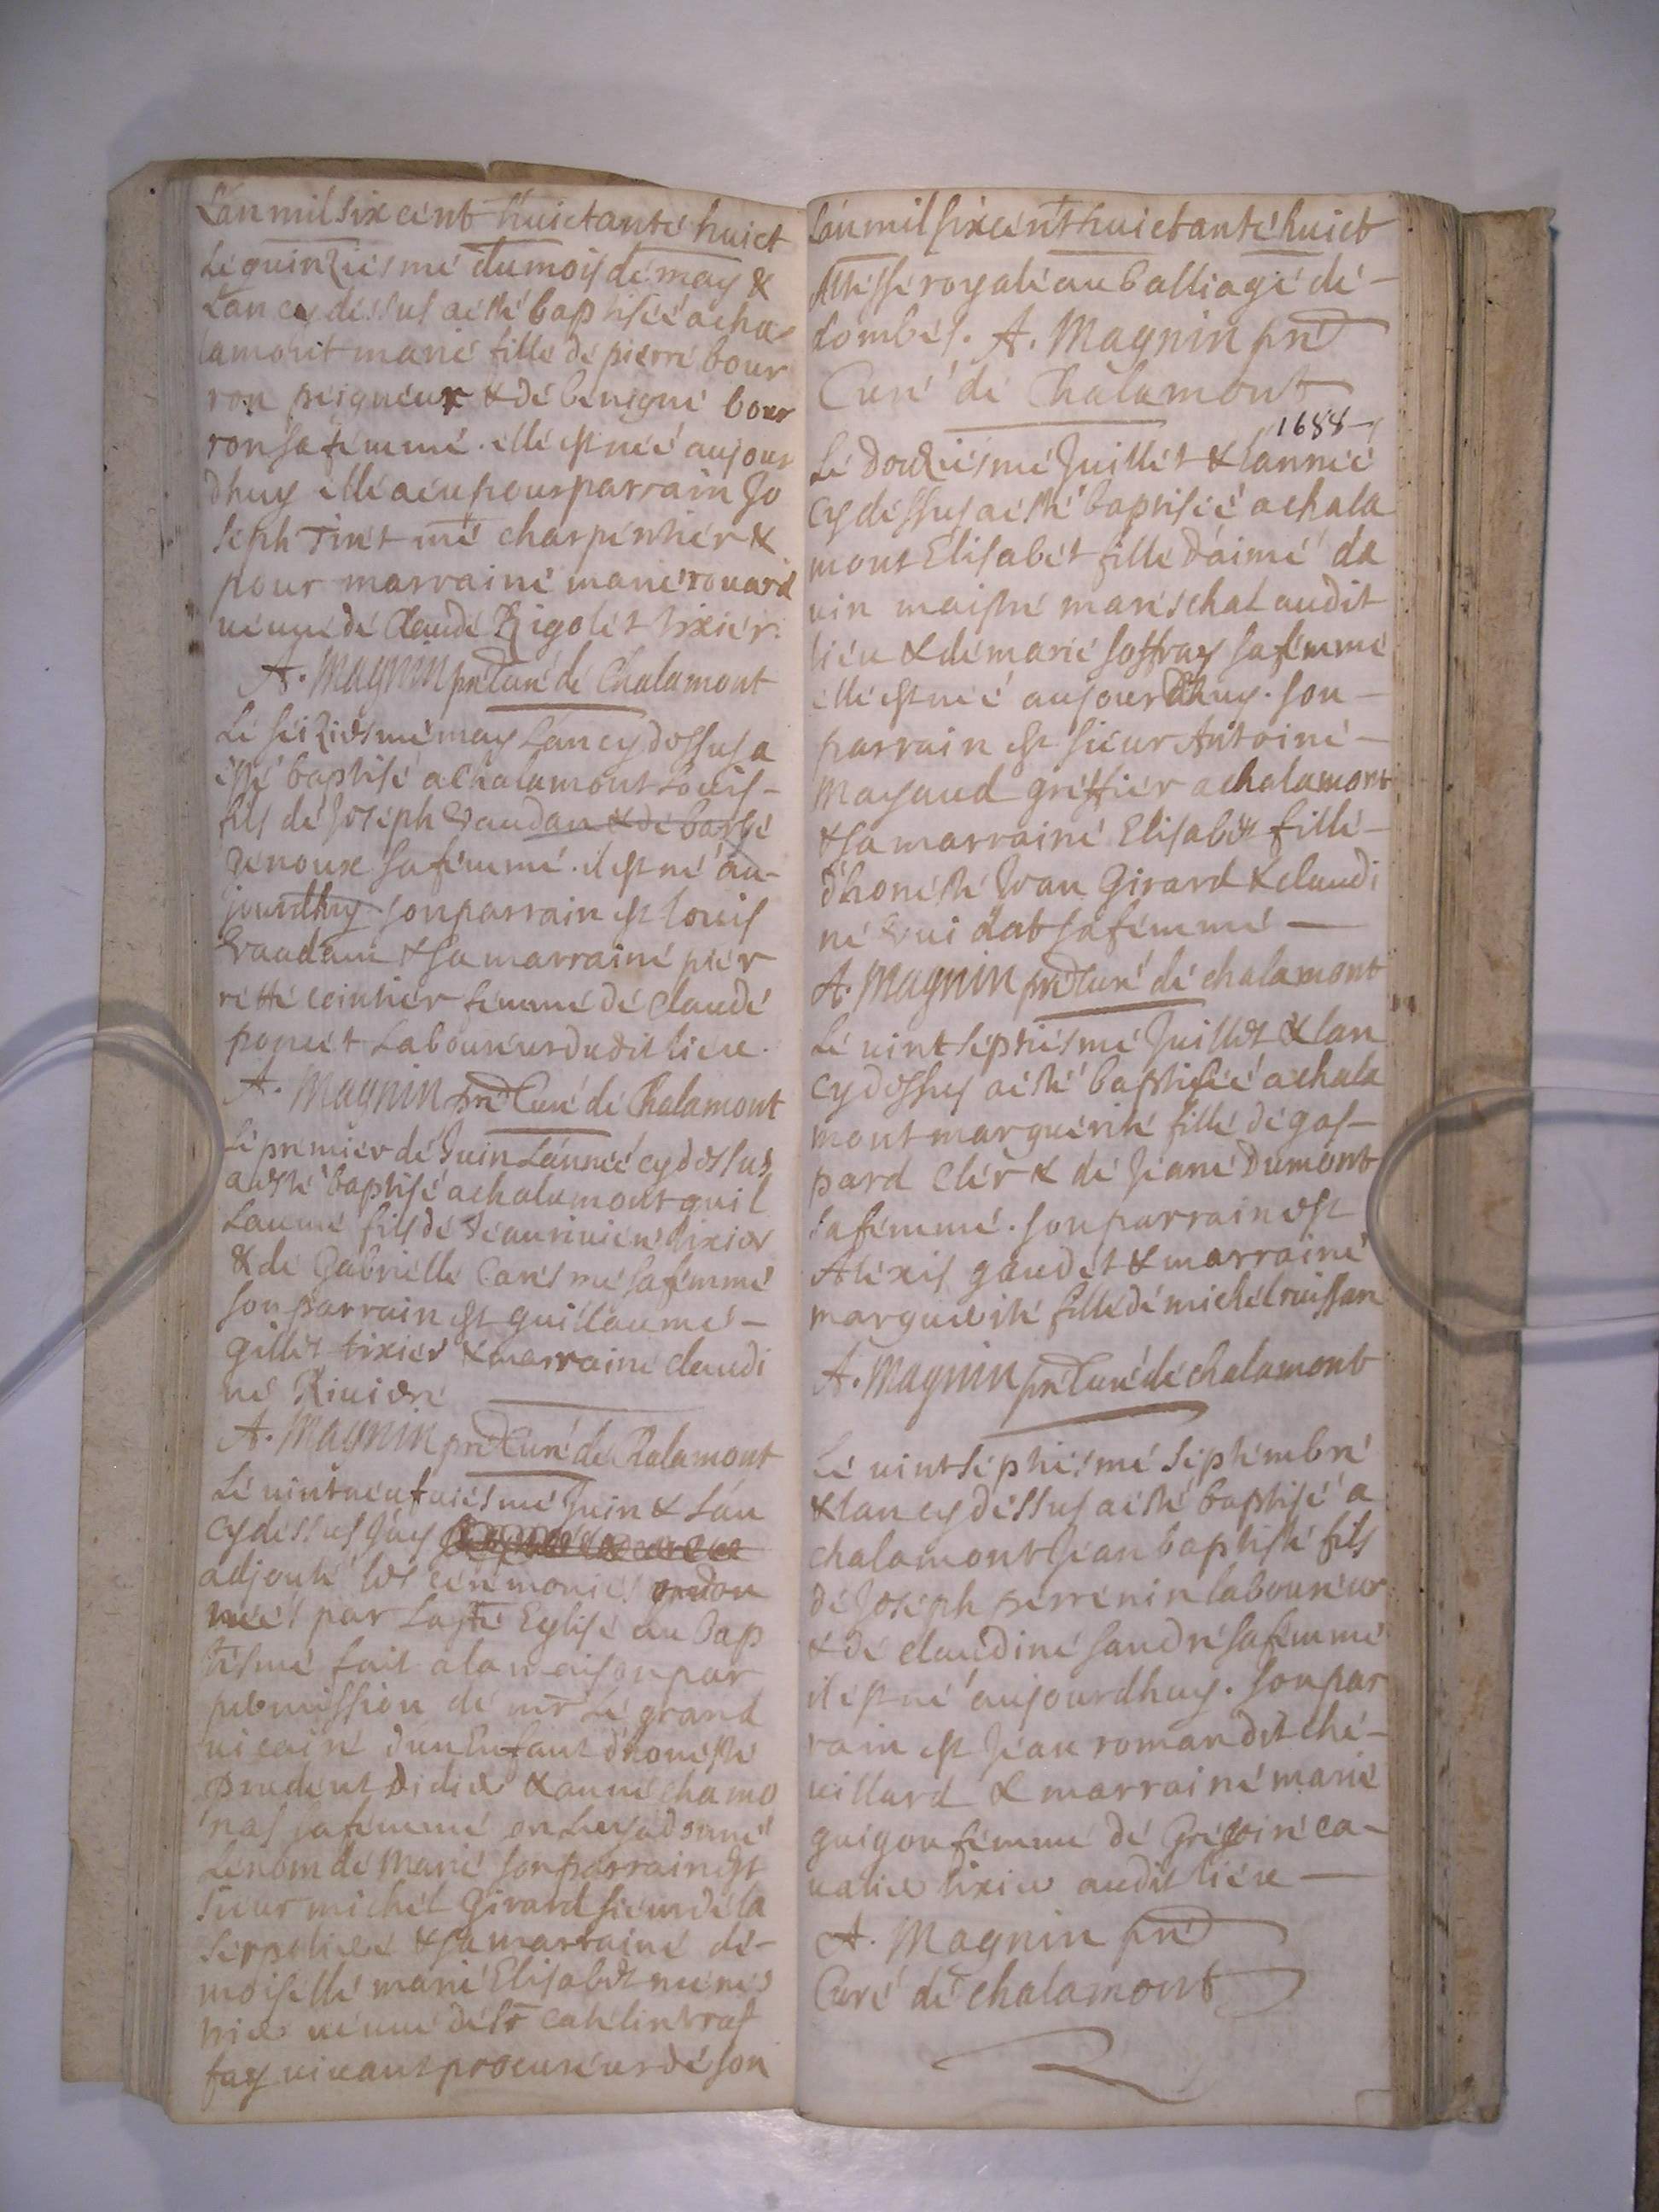 L'an mil six cent huictante huict
Le quinziesme du mois de may &
L'an cy dessus a esté baptisée a cha
lamont marie fille de pierre bour
ron peigneur & de benigne bour
ron sa femme. elle est née aujour
dhuy elle a eu pour parrain Jo
seph Tinet me charpentier &
pour marraine marie rouard
veuve de Claude Rigolet tixier.
A. Magnin pre Curé de Chalamont
Le seiziesme may L'an cy dessus a
esté baptisé a Chalamont Louis
fils de Joseph Vaudan & de barbe
genoux sa femme. il est né au-
jourdhuy son parrain est louis
Vaudan & sa marraine pier
rette cointier femme de Claude
poncet Laboureur dudit lieu.
A. Magnin pre Curé de Chalamont
Le premier de Juin L'année cy dessus
a esté baptisé a chalamont guil
Laume fils de Jean tixier
& de Gabrielle Caresme sa femme
son parrain est guillaume
gillet tixier & marraine claudi
ne Riviere
A. Magnin pre Curé de Chalamont
Le vintneufviesme Juin & L'an
cy dessus J'ay
adjouté les ceremonies ordon
nées par La ste Eglise au bap
tesme fait a la maison par
permission de mr Le grand
vicaire d'un Enfant d'honeste
prudent Didier & anne chamo
nas sa femme on Luy a donné
Le nom de Marie son parrain est
sieur michel Girard sieur de la
serpoliere & sa marraine de-
moiselle marie Elisabet
veuve de sr Catelin traf
fay vivant procureur de son
L'an mil six cent huictante huict
Altesse royale au balliage de
dombes. A. Magnin pre
Curé de Chalamont
1688
Le douziesme Juillet & l'année
cy dessus a esté baptisée a chala
mont Elisabet fille d'aimé da
vin maistre mareschal audit
lieu & de marie soffray sa femme
elle est née aujourdhuy. son
parrain est sieur Antoine
Mayaud greffier a chalamont
& sa marraine Elisabet fille
d'honeste Ivan Girard & claudi
ne sa femme
A. Magnin pre Curé de chalamont
Le vint septiesme Juillet & l'an
cy dessus a esté baptisée a chala
mont marguerite fille de gas-
pard Cler & de Jeane Dumont
sa femme. son parrain est
Alexis gaudet & marraine
marguerite fille de michel ruissan
A. Magnin pre Curé de chalamont
Le vint septiesme septembre
& l'an cy dessus a esté baptisé a
chalamont Jean baptiste fils
de Joseph perrenin laboureur
& de claudine sandre sa femme
il est né aujourdhuy. son par
rain est Jean roman dit che-
villard & marraine marie
guigou femme de Gregoire ca-
valier tixier audit lieu
A. Magnin pre
Curé de chalamont